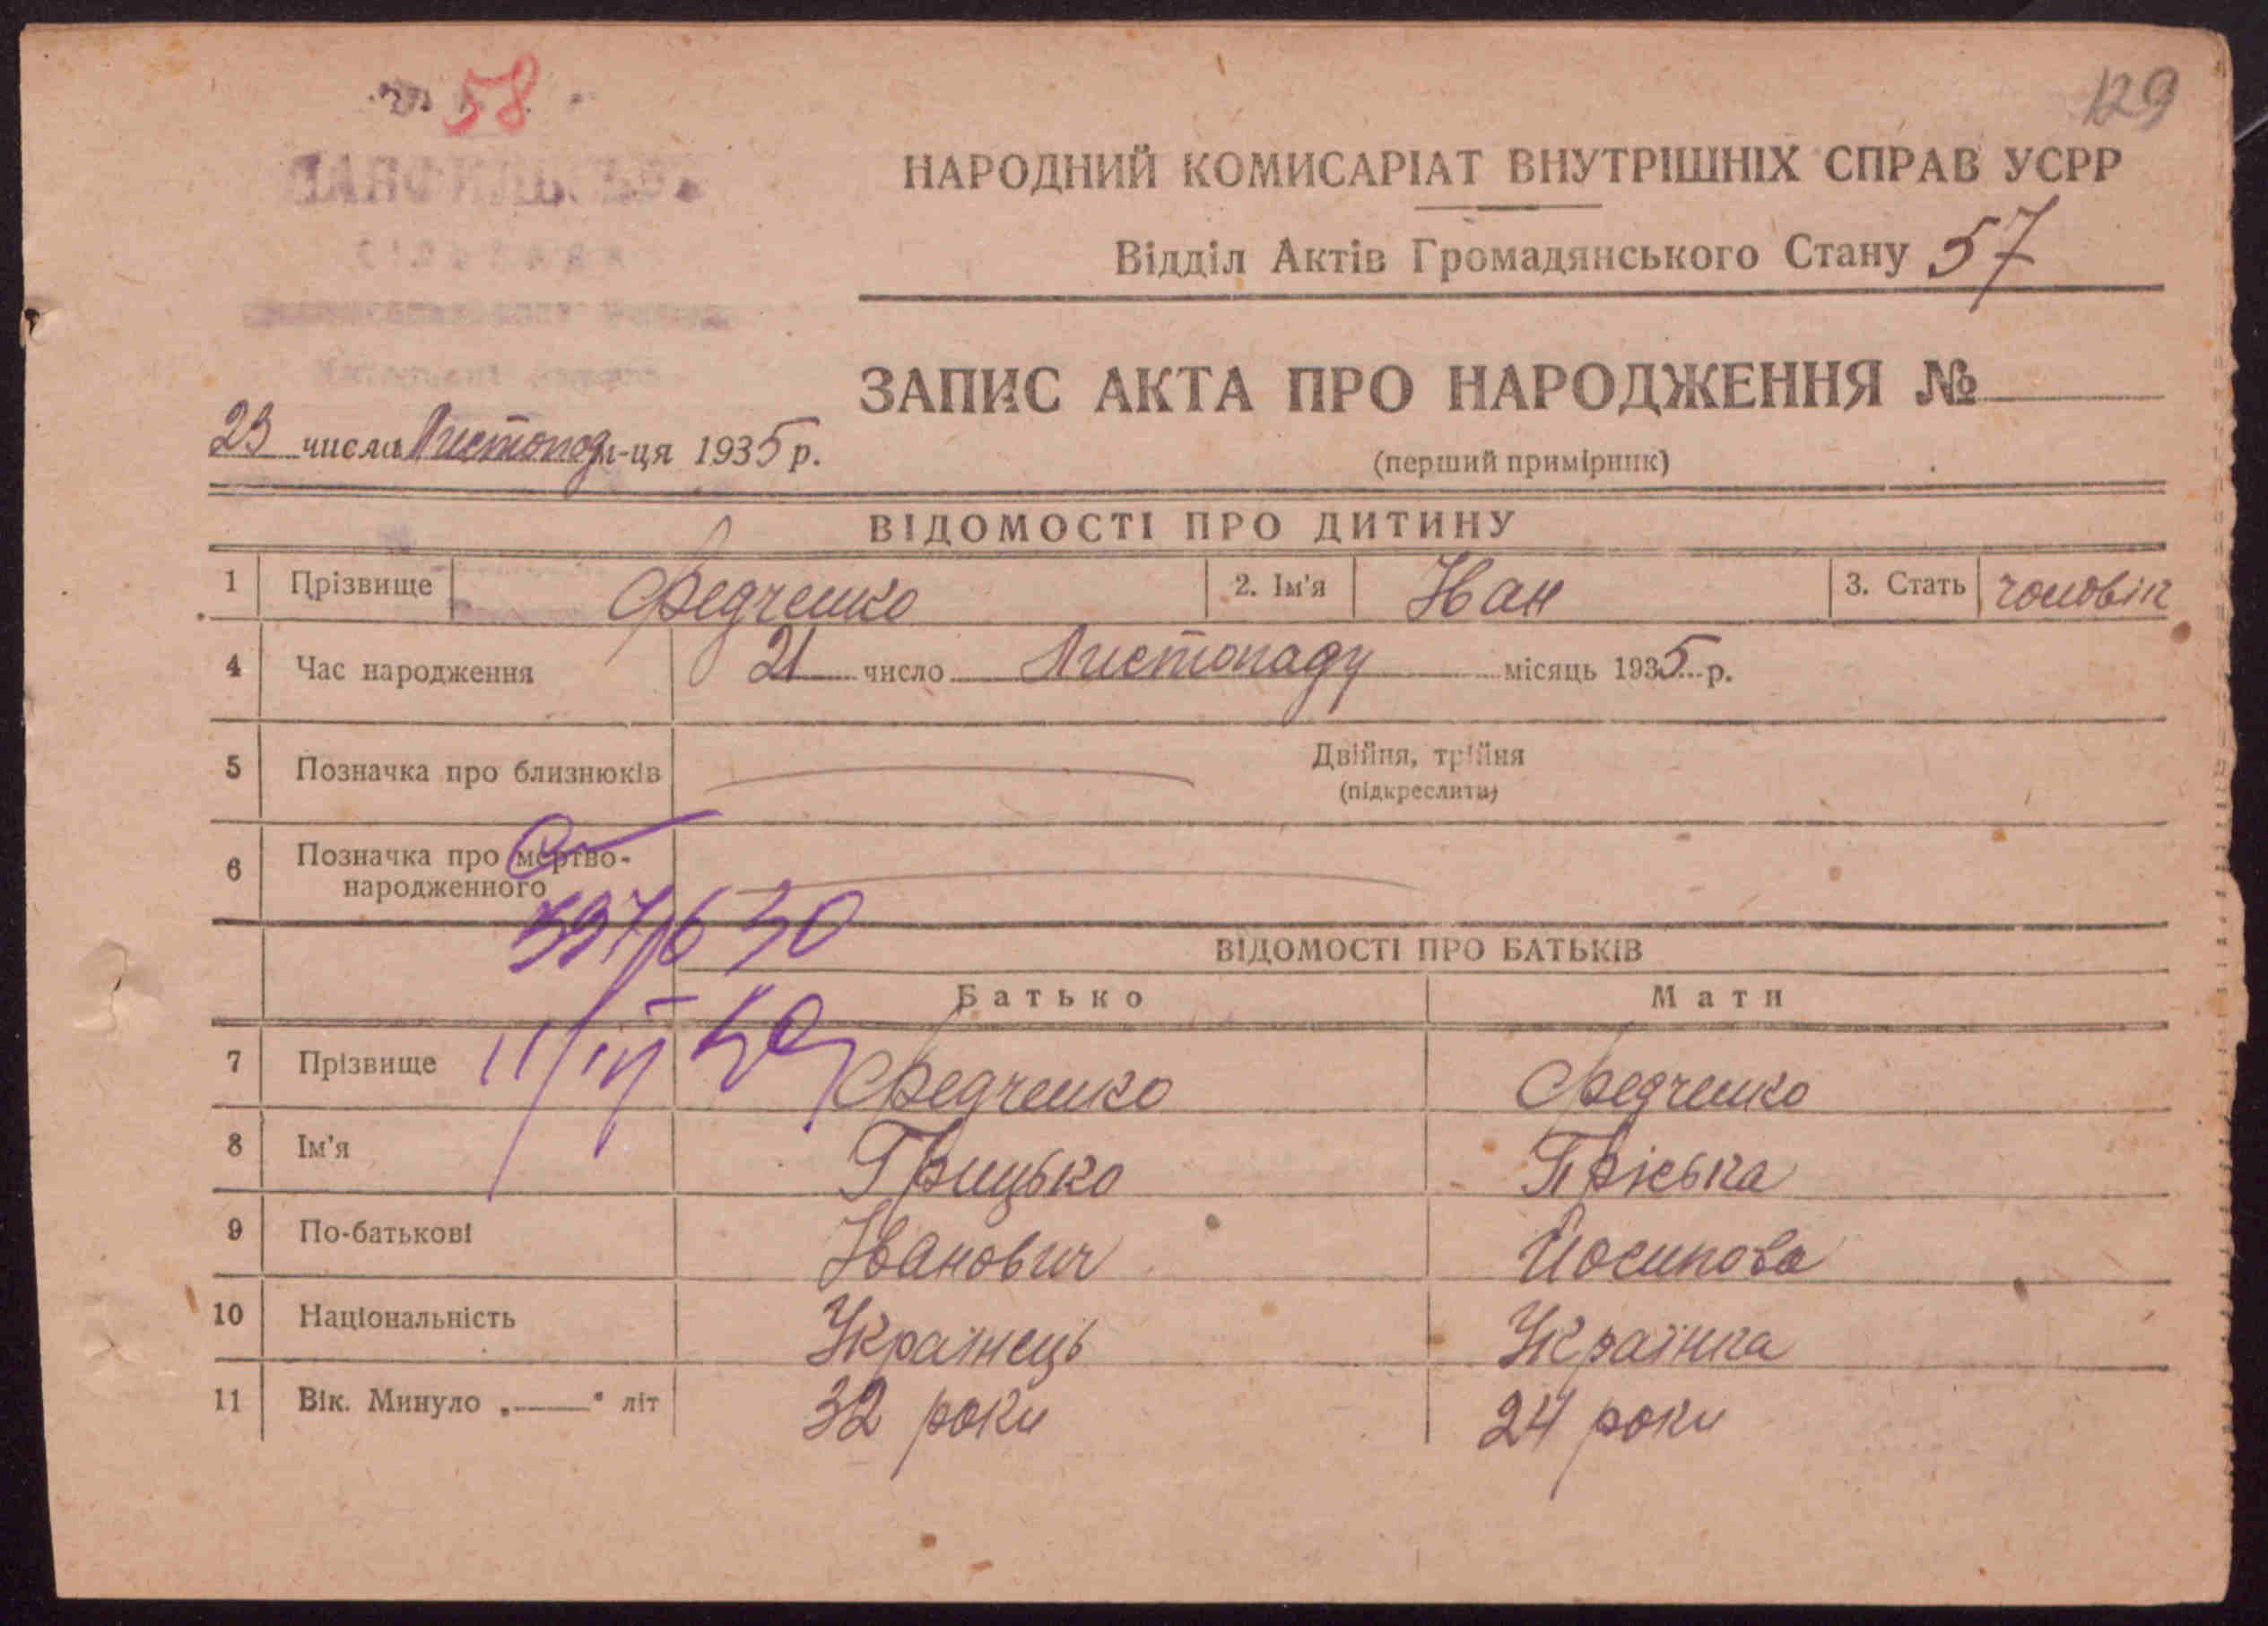 58
129
НАРОДНИЙ КОМИСАРІАТ ВНУТРІШНІХ СПРАВ УСРР
Відділ Актів Громадянського Стану 57
ЗАПИС АКТА ПРО НАРОДЖЕННЯ №
23 числа Листопад м-ця 1935 р.
(перший примірник)
ВІДОМОСТІ ПРО ДИТИНУ
1 Прізвище Федченко 2. Ім'я Іван 3. Стать чоловік
4 Час народження 21 число Листопаду місяць 1935 р.
5 Позначка про близнюків Двійня, трійня
(підкреслити)
6 Позначка про мертво-
народженного
ВІДОМОСТІ ПРО БАТЬКІВ
Батько Мати
7 Прізвище Федченко Федченко
8 Ім'я Грицько Пріська
9 По-батькові Іванович Йосипова
10 Національність Українець Українка
11 Вік. Минуло „——" літ 32 роки 24 роки